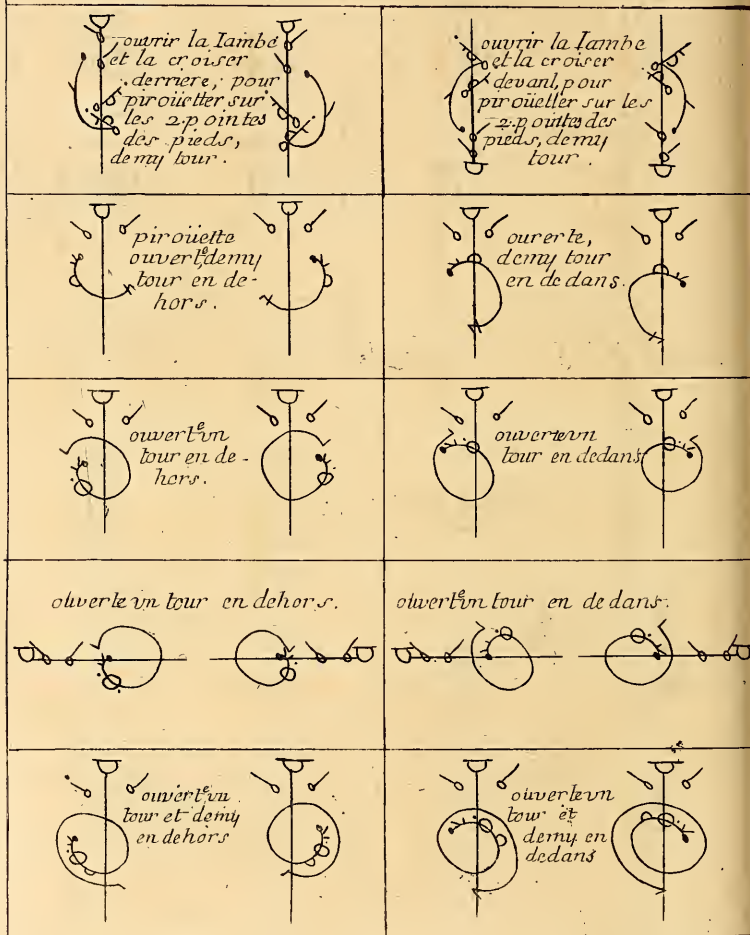 ouvrir la Iambe
et la croiser
derriere, pour
piroüetter sur
les 2.pointes
des pieds,
demy tour.
ouvrir la Iambe
et la croiser
devant, pour
piroüetter sur les
2.pointes des
pieds, demy
tour.
piroüette
ouverte, demy
tour en de-
hors.
ouverte,
demy tour
en dedans.
ouverte vn
tour en de-
hors.
ouverte vn
tour en dedans
ouverte vn tour en dehors.
ouverte vn tour en dedans.
ouverte vn
tour et demy
en dehors
ouverte vn
tour et
demy en
dedans